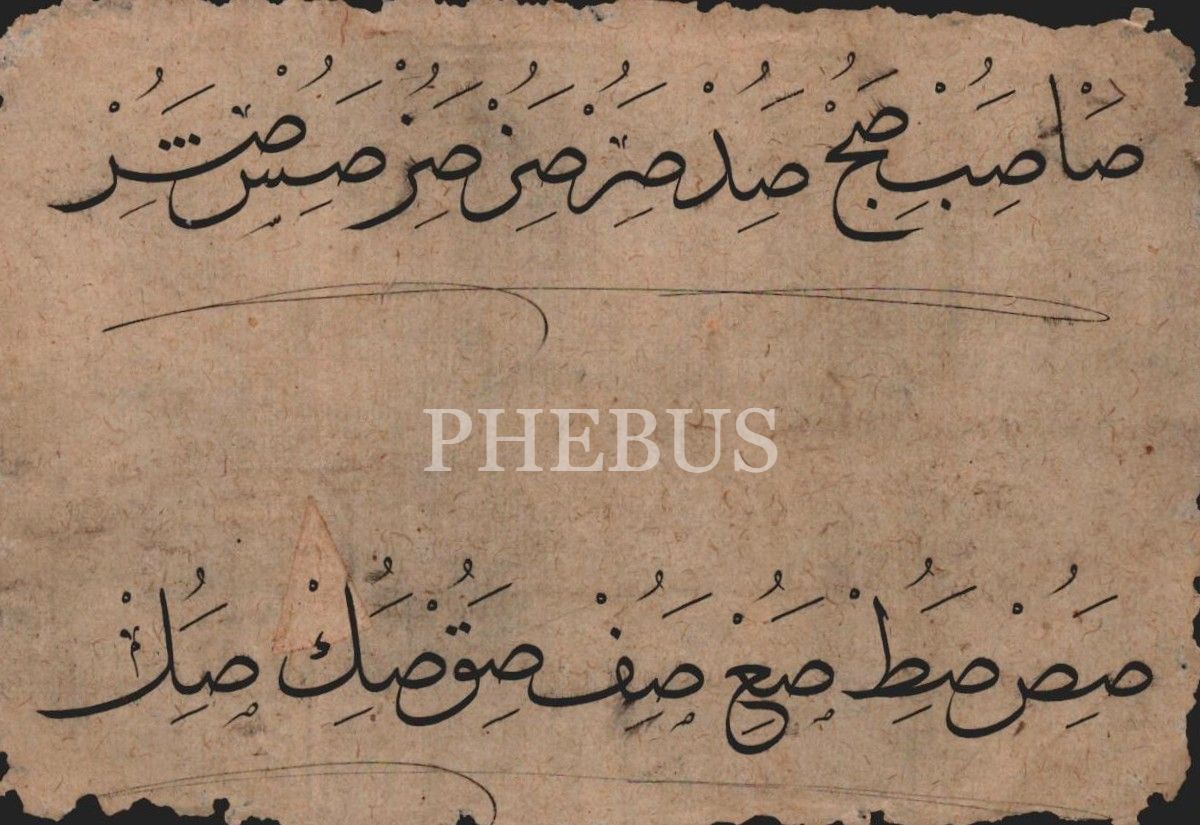 صا صب صح صد صر صر صر صس
PHEBUS
صص صط صع صف صو صك صك